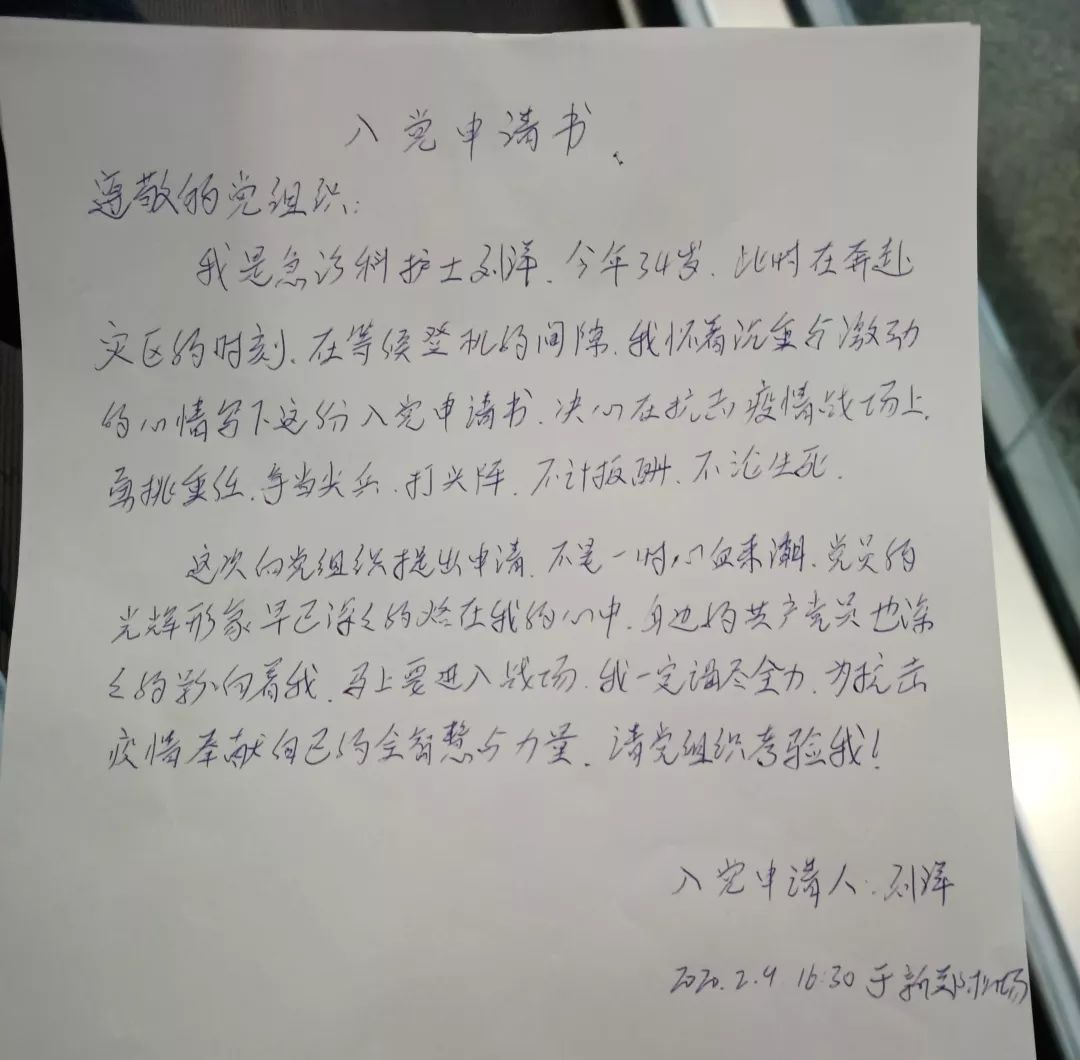 入党申请书
尊敬的党组织:
我是急诊科护士刘洋.今年34岁.此时在奔赴
灾区的时刻.在等候登机的间隙.我怀着沉重与激动
的心情写下这份入党申请书.决心在抗击疫情战场上.
勇挑重任.争当尖兵.打头阵.不计报酬.不论生死.
这次向党组织提出申请.不是一时心血来潮.党员的
光辉形象早已深深的烙在我的心中.身边的共产党员也深
深的影响着我.马上要进入战场.我一定竭尽全力.为抗击
疫情奉献自己的全智慧与力量.请党组织考验我!
入党申请人:刘洋
2020.2.9 16:30 于新郑机场